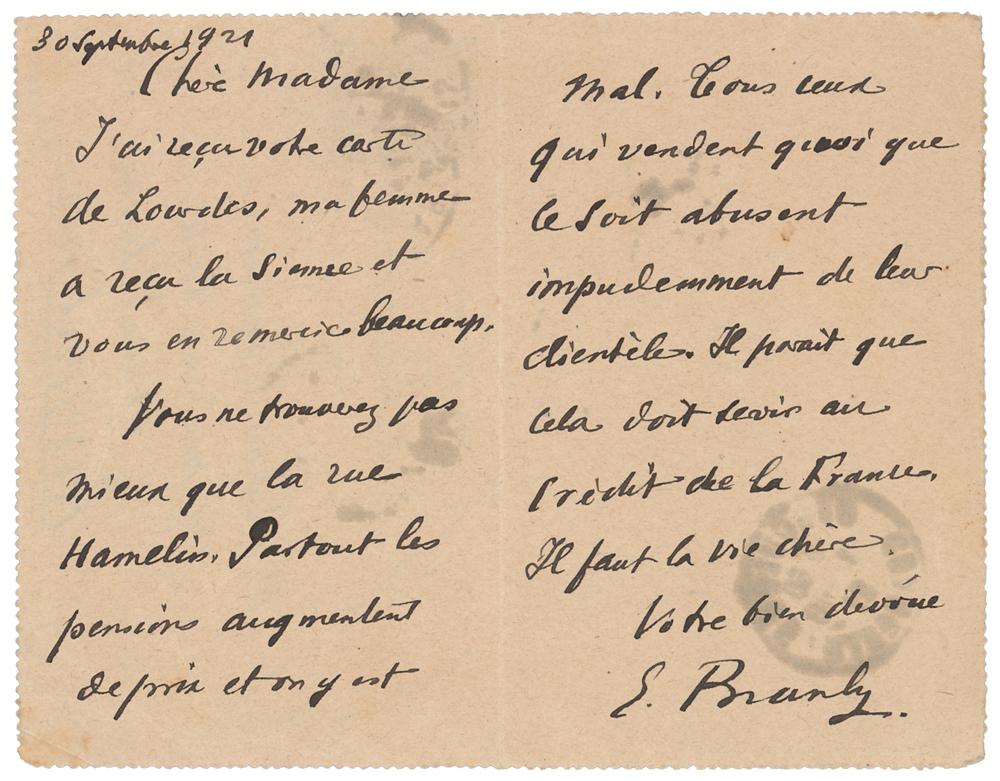 30 Septembre 1921
Chère Madame
J'ai reçu votre carte
de Lourdes, ma femme
a reçu la sienne et
vous en remercie beaucoup.
Vous ne trouverez pas
mieux que la rue
Hamelin. Partout les
pensions augmentent
de prix et on y est
mal. Tous ceux
qui vendent quoi que
ce soit abusent
impudemment de leur
clientèle. Il parait que
cela doit servir au
Crédit de la France.
Il faut la vie chère.
Votre bien dévoué
E. Branly.